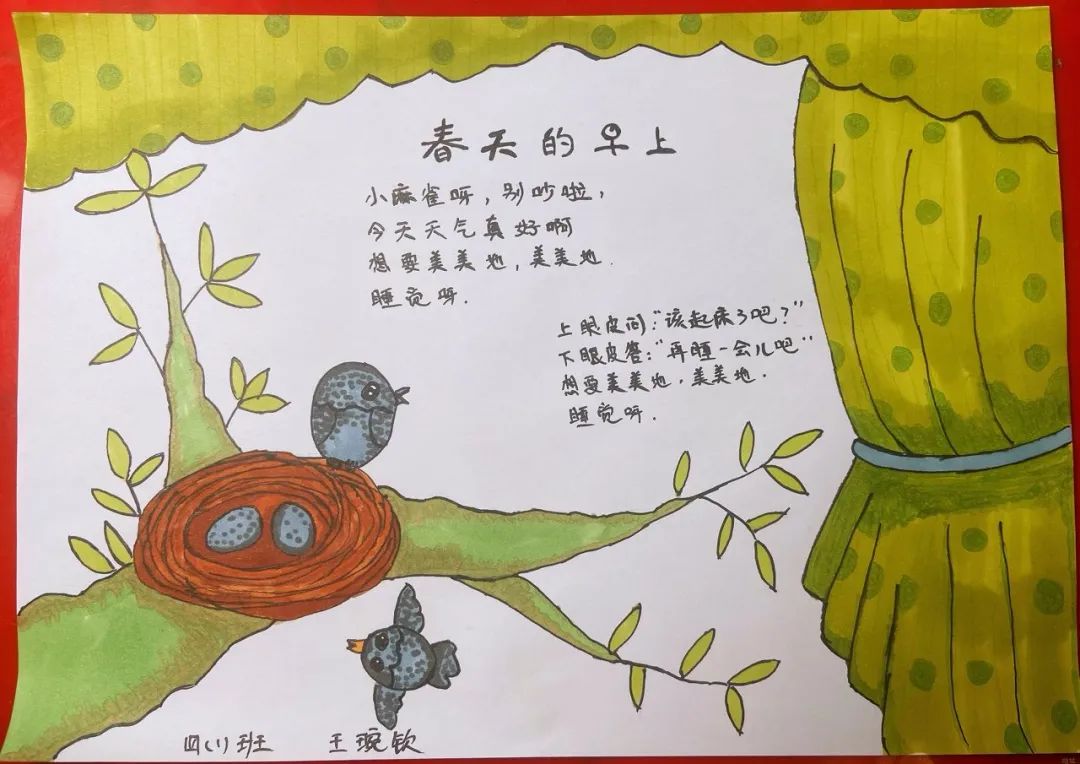 春天的早上
小麻雀呀，别吵啦，
今天天气真好啊
想要美美地，美美地.
睡觉呀.
上眼皮问："该起床了吧？"
下眼皮答："再睡一会儿吧"
想要美美地，美美地.
睡觉呀.
四(1)班 王琬钦